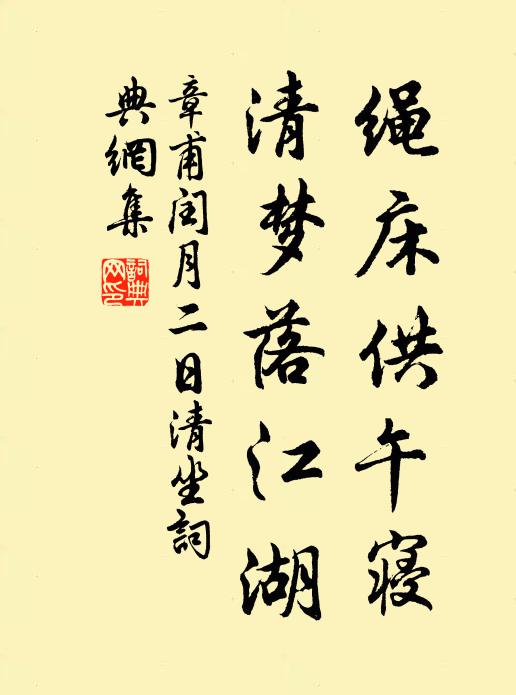 绳床供午寝
清梦落江湖
章甫闰月二日清坐詞
典網集
詞典网印